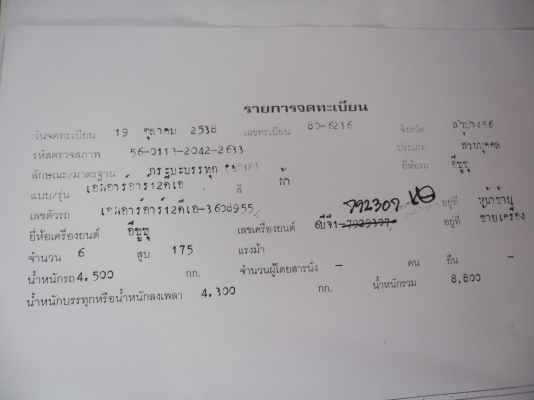 รายการจดทะเบียน
วันจดทะเบียน 19 ตุลาคม 2538 เลขทะเบียน 80-6236 จังหวัด ลำปาง56
รหัสตรวจสภาพ 56-0113-2042-2633 ประเภท ส่วนบุคคล
ลักษณะ/มาตรฐาน กระบะบรรทุก ยี่ห้อรถ อีซูซุ
แบบ/รุ่น เอฟอาร์อาร์12คีเอ สี ฟ้า
เลขตัวรถ เอฟอาร์อาร์12คีเอ-3608955 792307 อยู่ที่ หน้าซ้าย
ยี่ห้อเครื่องยนต์ อีซูซุ เลขเครื่องยนต์ 6บีจี1- อยู่ที่ ซ้ายเครื่อง
จำนวน 6 สูบ 175 แรงม้า
น้ำหนักรถ 4,500 กก. จำนวนผู้โดยสารนั่ง - คน ยืน -
น้ำหนักบรรทุกหรือน้ำหนักลงเพลา 4,300 กก. น้ำหนักรวม 8,800